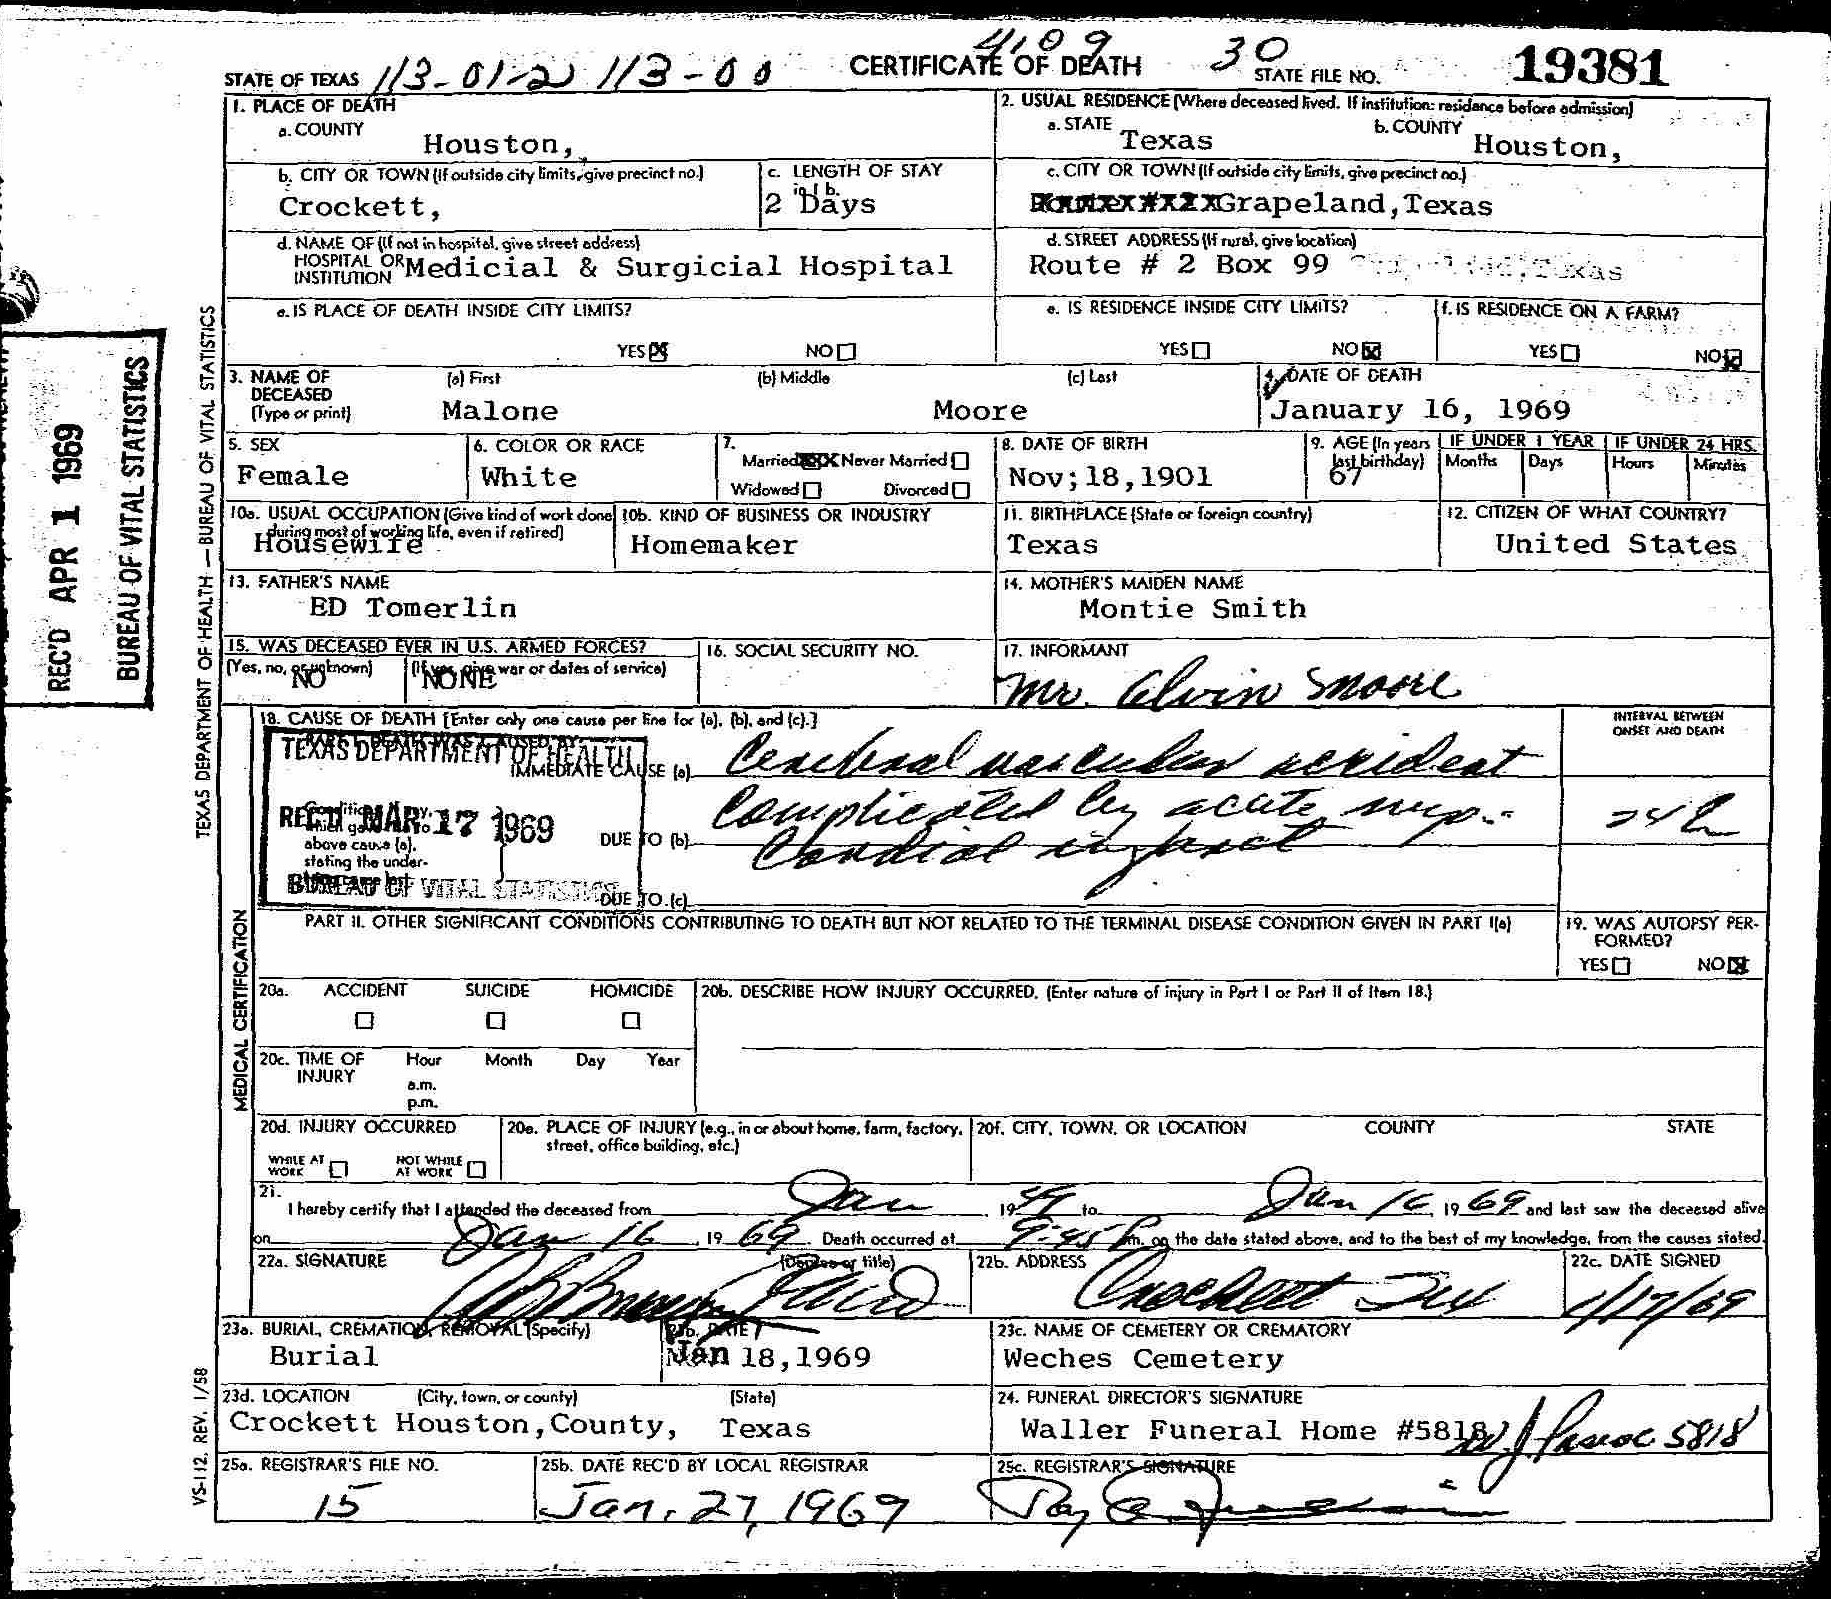 4109 30
STATE OF TEXAS 113-01-2 113-00 CERTIFICATE OF DEATH STATE FILE NO. 19381
1. PLACE OF DEATH
a. COUNTY
Houston,
2. USUAL RESIDENCE (Where deceased lived. If institution: residence before admission)
a. STATE
Texas
b. COUNTY
Houston,
b. CITY OR TOWN (If outside city limits, give precinct no.)
Crockett,
c. LENGTH OF STAY
in 1 b.
2 Days
c. CITY OR TOWN (If outside city limits, give precinct no.)
Grapeland, Texas
d. NAME OF (If not in hospital, give street address)
HOSPITAL OR
INSTITUTION
Medicial & Surgicial Hospital
d. STREET ADDRESS (If rural, give location)
Route # 2 Box 99
e. IS PLACE OF DEATH INSIDE CITY LIMITS?
YES NO
e. IS RESIDENCE INSIDE CITY LIMITS?
YES NO
f. IS RESIDENCE ON A FARM?
YES NO
3. NAME OF
DECEASED
(Type or print)
(a) First (b) Middle (c) Last
Malone Moore
4. DATE OF DEATH
January 16, 1969
5. SEX
Female
6. COLOR OR RACE
White
7.
Married XXX Never Married
Widowed Divorced
8. DATE OF BIRTH
Nov;18,1901
9. AGE (In years
last birthday)
67
IF UNDER 1 YEAR
Months Days
IF UNDER 24 HRS.
Hours Minutes
10a. USUAL OCCUPATION (Give kind of work done
during most of working life, even if retired)
Housewife
10b. KIND OF BUSINESS OR INDUSTRY
Homemaker
11. BIRTHPLACE (State or foreign country)
Texas
12. CITIZEN OF WHAT COUNTRY?
United States
13. FATHER'S NAME
ED Tomerlin
14. MOTHER'S MAIDEN NAME
Montie Smith
15. WAS DECEASED EVER IN U.S. ARMED FORCES?
(Yes, no, or unknown) (If yes, give war or dates of service)
NO NONE
16. SOCIAL SECURITY NO.
17. INFORMANT
Mr. Alvin Moore
18. CAUSE OF DEATH [Enter only one cause per line for (a), (b), and (c).]
INTERVAL BETWEEN
ONSET AND DEATH
PART I. DEATH WAS CAUSED BY:
TEXAS DEPARTMENT OF HEALTH
IMMEDIATE CAUSE (a) Cerebral vascular accident
REC'D MAR 17 1969
above cause (a),
stating the under-
DUE TO (b) Complicated by acute myo-
cardial infarct
BUREAU OF VITAL STATISTICS
DUE TO (c)
PART II. OTHER SIGNIFICANT CONDITIONS CONTRIBUTING TO DEATH BUT NOT RELATED TO THE TERMINAL DISEASE CONDITION GIVEN IN PART I(a)
19. WAS AUTOPSY PER-
FORMED?
YES NO
20a. ACCIDENT SUICIDE HOMICIDE
20b. DESCRIBE HOW INJURY OCCURRED. (Enter nature of injury in Part I or Part II of Item 18.)
20c. TIME OF
INJURY
Hour Month Day Year
a.m.
p.m.
20d. INJURY OCCURRED
WHILE AT
WORK
NOT WHILE
AT WORK
20e. PLACE OF INJURY (e.g., in or about home, farm, factory,
street, office building, etc.)
20f. CITY, TOWN, OR LOCATION COUNTY STATE
21.
I hereby certify that I attended the deceased from Jan 19 49 to Jan 16, 19 69 and last saw the deceased alive
on Jan 16, 19 69. Death occurred at 9:45 P m. on the date stated above, and to the best of my knowledge, from the causes stated.
22a. SIGNATURE (Degree or title)
22b. ADDRESS
Crockett Tex
22c. DATE SIGNED
1/17/69
23a. BURIAL, CREMATION, REMOVAL (Specify)
Burial
23b. DATE
Jan 18,1969
23c. NAME OF CEMETERY OR CREMATORY
Weches Cemetery
23d. LOCATION (City, town, or county) (State)
Crockett Houston,County, Texas
24. FUNERAL DIRECTOR'S SIGNATURE
Waller Funeral Home #5818 5818
25a. REGISTRAR'S FILE NO.
15
25b. DATE REC'D BY LOCAL REGISTRAR
Jan. 27, 1969
25c. REGISTRAR'S SIGNATURE
REC'D APR 1 1969
BUREAU OF VITAL STATISTICS
TEXAS DEPARTMENT OF HEALTH — BUREAU OF VITAL STATISTICS
MEDICAL CERTIFICATION
VS-112, REV. 1/58